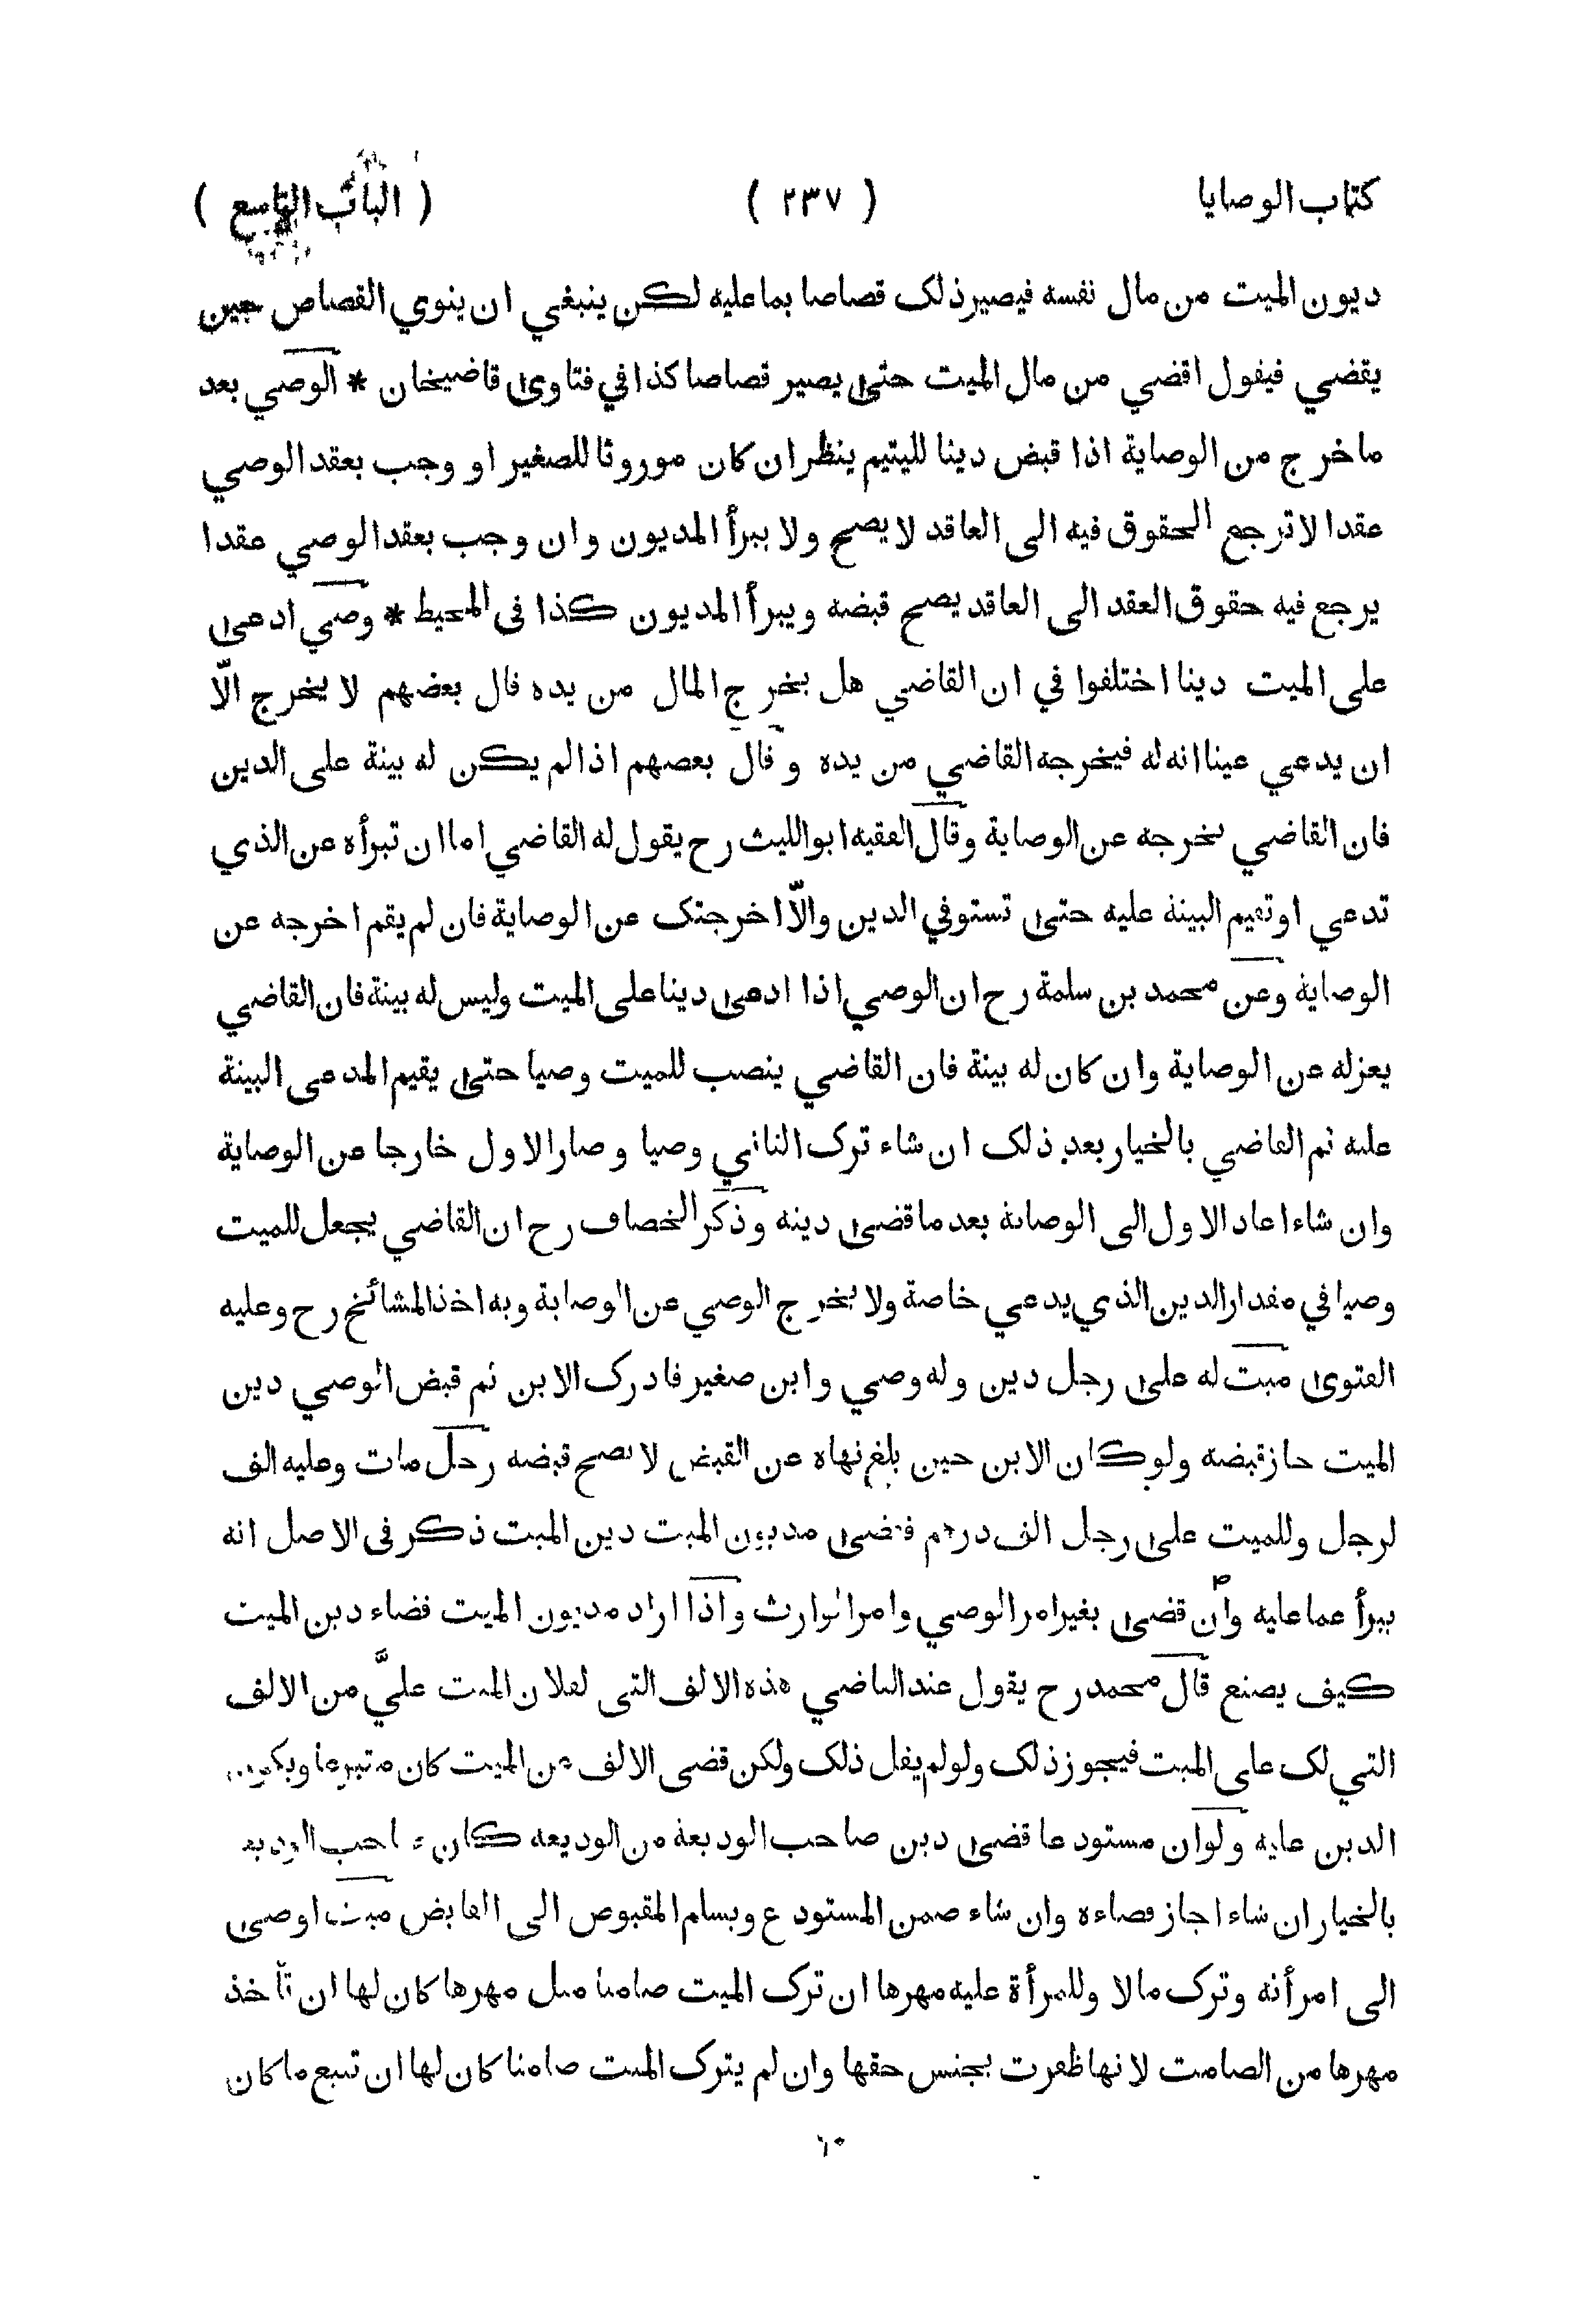 كتاب الوصايا ( ٢٣٧ ) ( الباب التاسع )
ديون الميت من مال نفسه فيصير ذلك قصاصا بما عليه لكن ينبغي ان ينوي القصاص حين
يقضي فيقول اقضي من مال الميت حتى يصير قصاصا كذا في فتاوى قاضيخان * الوصي بعد
ما خرج من الوصاية اذا قبض دينا لليتيم ينظر ان كان موروثا للصغير او وجب بعقد الوصي
عقدا لا ترجع الحقوق فيه الى العاقد لا يصح ولا يبرأ المديون وان وجب بعقد الوصي عقدا
يرجع فيه حقوق العقد الى العاقد يصح قبضه ويبرأ المديون كذا في المحيط * وصي ادعى
على الميت دينا اختلفوا في ان القاضي هل يخرج المال من يده قال بعضهم لا يخرج الّا
ان يدعي عينا انه له فيخرجه القاضي من يده وقال بعضهم اذا لم يكن له بينة على الدين
فان القاضي يخرجه عن الوصاية وقال الفقيه ابو الليث رح يقول له القاضي اما ان تبرأه عن الذي
تدعي او تقيم البينة عليه حتى تستوفي الدين والّا اخرجتك عن الوصاية فان لم يقم اخرجه عن
الوصاية وعن محمد بن سلمة رح ان الوصي اذا ادعى دينا على الميت وليس له بينة فان القاضي
يعزله عن الوصاية وان كان له بينة فان القاضي ينصب للميت وصيا حتى يقيم المدعى البينة
عليه ثم القاضي بالخيار بعد ذلك ان شاء ترك الثاني وصيا وصار الاول خارجا عن الوصاية
وان شاء اعاد الاول الى الوصاية بعد ما قضى دينه وذكر الخصاف رح ان القاضي يجعل للميت
وصيا في مقدار الدين الذي يدعي خاصة ولا يخرج الوصي عن الوصاية وبه اخذ المشائخ رح وعليه
الفتوى ميت له على رجل دين وله وصي وابن صغير فادرك الابن ثم قبض الوصي دين
الميت جاز قبضه ولو كان الابن حين بلغ نهاه عن القبض لا يصح قبضه رجل مات وعليه الف
لرجل وللميت على رجل الف درهم فقضى مديون الميت دين الميت ذكر في الاصل انه
يبرأ عما عليه وان قضى بغير امر الوصي وامر الوارث واذا اراد مديون الميت قضاء دين الميت
كيف يصنع قال محمد رح يقول عند القاضي هذه الالف التي لفلان الميت عليَّ من الالف
التي لك على الميت فيجوز ذلك ولو لم يقل ذلك ولكن قضى الالف عن الميت كان متبرعا ويكون
الدين عليه ولو ان مستودعا قضى دين صاحب الوديعة من الوديعه كان صاحب الوديعه
بالخيار ان شاء اجاز قضاءه وان شاء ضمن المستودع ويسلم المقبوض الى القابض ميت اوصى
الى امرأته وترك مالا وللمرأة عليه مهرها ان ترك الميت صامتا مثل مهرها كان لها ان تأخذ
مهرها من الصامت لانها ظفرت بجنس حقها وان لم يترك الميت صامتا كان لها ان تبيع ما كان